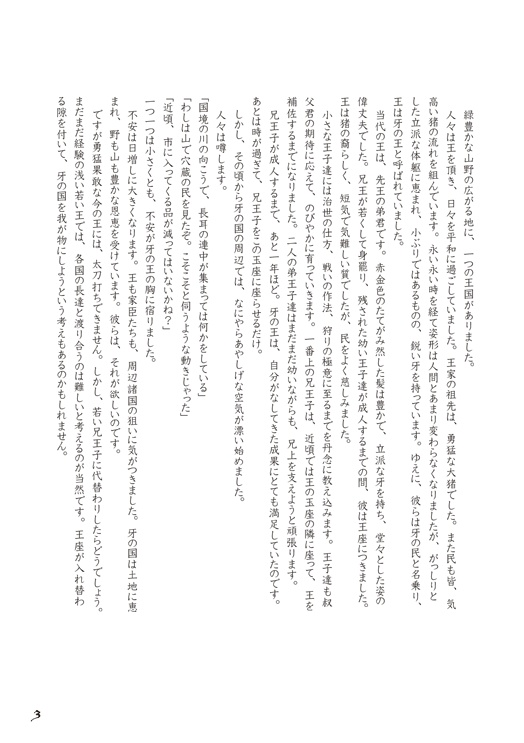 緑豊かな山野の広がる地に、一つの王国がありました。
人々は王を頂き、日々を平和に過ごしていました。王家の祖先は、勇猛な大猪でした。また民も皆、気
高い猪の流れを組んでいます。永い永い時を経て姿形は人間とあまり変わらなくなりましたが、がっしりと
した立派な体躯に恵まれ、小ぶりではあるものの、鋭い牙を持っています。ゆえに、彼らは牙の民と名乗り、
王は牙の王と呼ばれていました。
当代の王は、先王の弟君です。赤金色のたてがみ然した髪は豊かで、立派な牙を持ち、堂々とした姿の
偉丈夫でした。兄王が若くして身罷り、残された幼い王子達が成人するまでの間、彼は王座につきました。
王は猪の裔らしく、短気で気難しい質でしたが、民をよく慈しみました。
小さな王子達には治世の仕方、戦いの作法、狩りの極意に至るまでを丹念に教え込みます。王子達も叔
父君の期待に応えて、のびやかに育っていきます。一番上の兄王子は、近頃では王の玉座の隣に座って、王を
補佐するまでになりました。二人の弟王子達はまだまだ幼いながらも、兄上を支えようと頑張ります。
兄王子が成人するまで、あと一年ほど。牙の王は、自分がなしてきた成果にとても満足していたのです。
あとは時が過ぎて、兄王子をこの玉座に座らせるだけ。
しかし、その頃から牙の国の周辺では、なにやらあやしげな空気が漂い始めました。
人々は噂します。
「国境の川の向こうで、長耳の連中が集まっては何かをしている」
「わしは山で穴蔵の民を見たぞ。こそこそと伺うような動きじゃった」
「近頃、市に入ってくる品が減ってはいないかね？」
一つ一つは小さくとも、不安が牙の王の胸に宿りました。
不安は日増しに大きくなります。王も家臣たちも、周辺諸国の狙いに気がつきました。牙の国は土地に恵
まれ、野も山も豊かな恩恵を受けています。彼らは、それが欲しいのです。
ですが勇猛果敢な今の王には、太刀打ちできません。しかし、若い兄王子に代替わりしたらどうでしょう。
まだまだ経験の浅い若い王では、各国の長達と渡り合うのは難しいと考えるのが当然です。王座が入れ替わ
る隙を付いて、牙の国を我が物にしようという考えもあるのかもしれません。
3